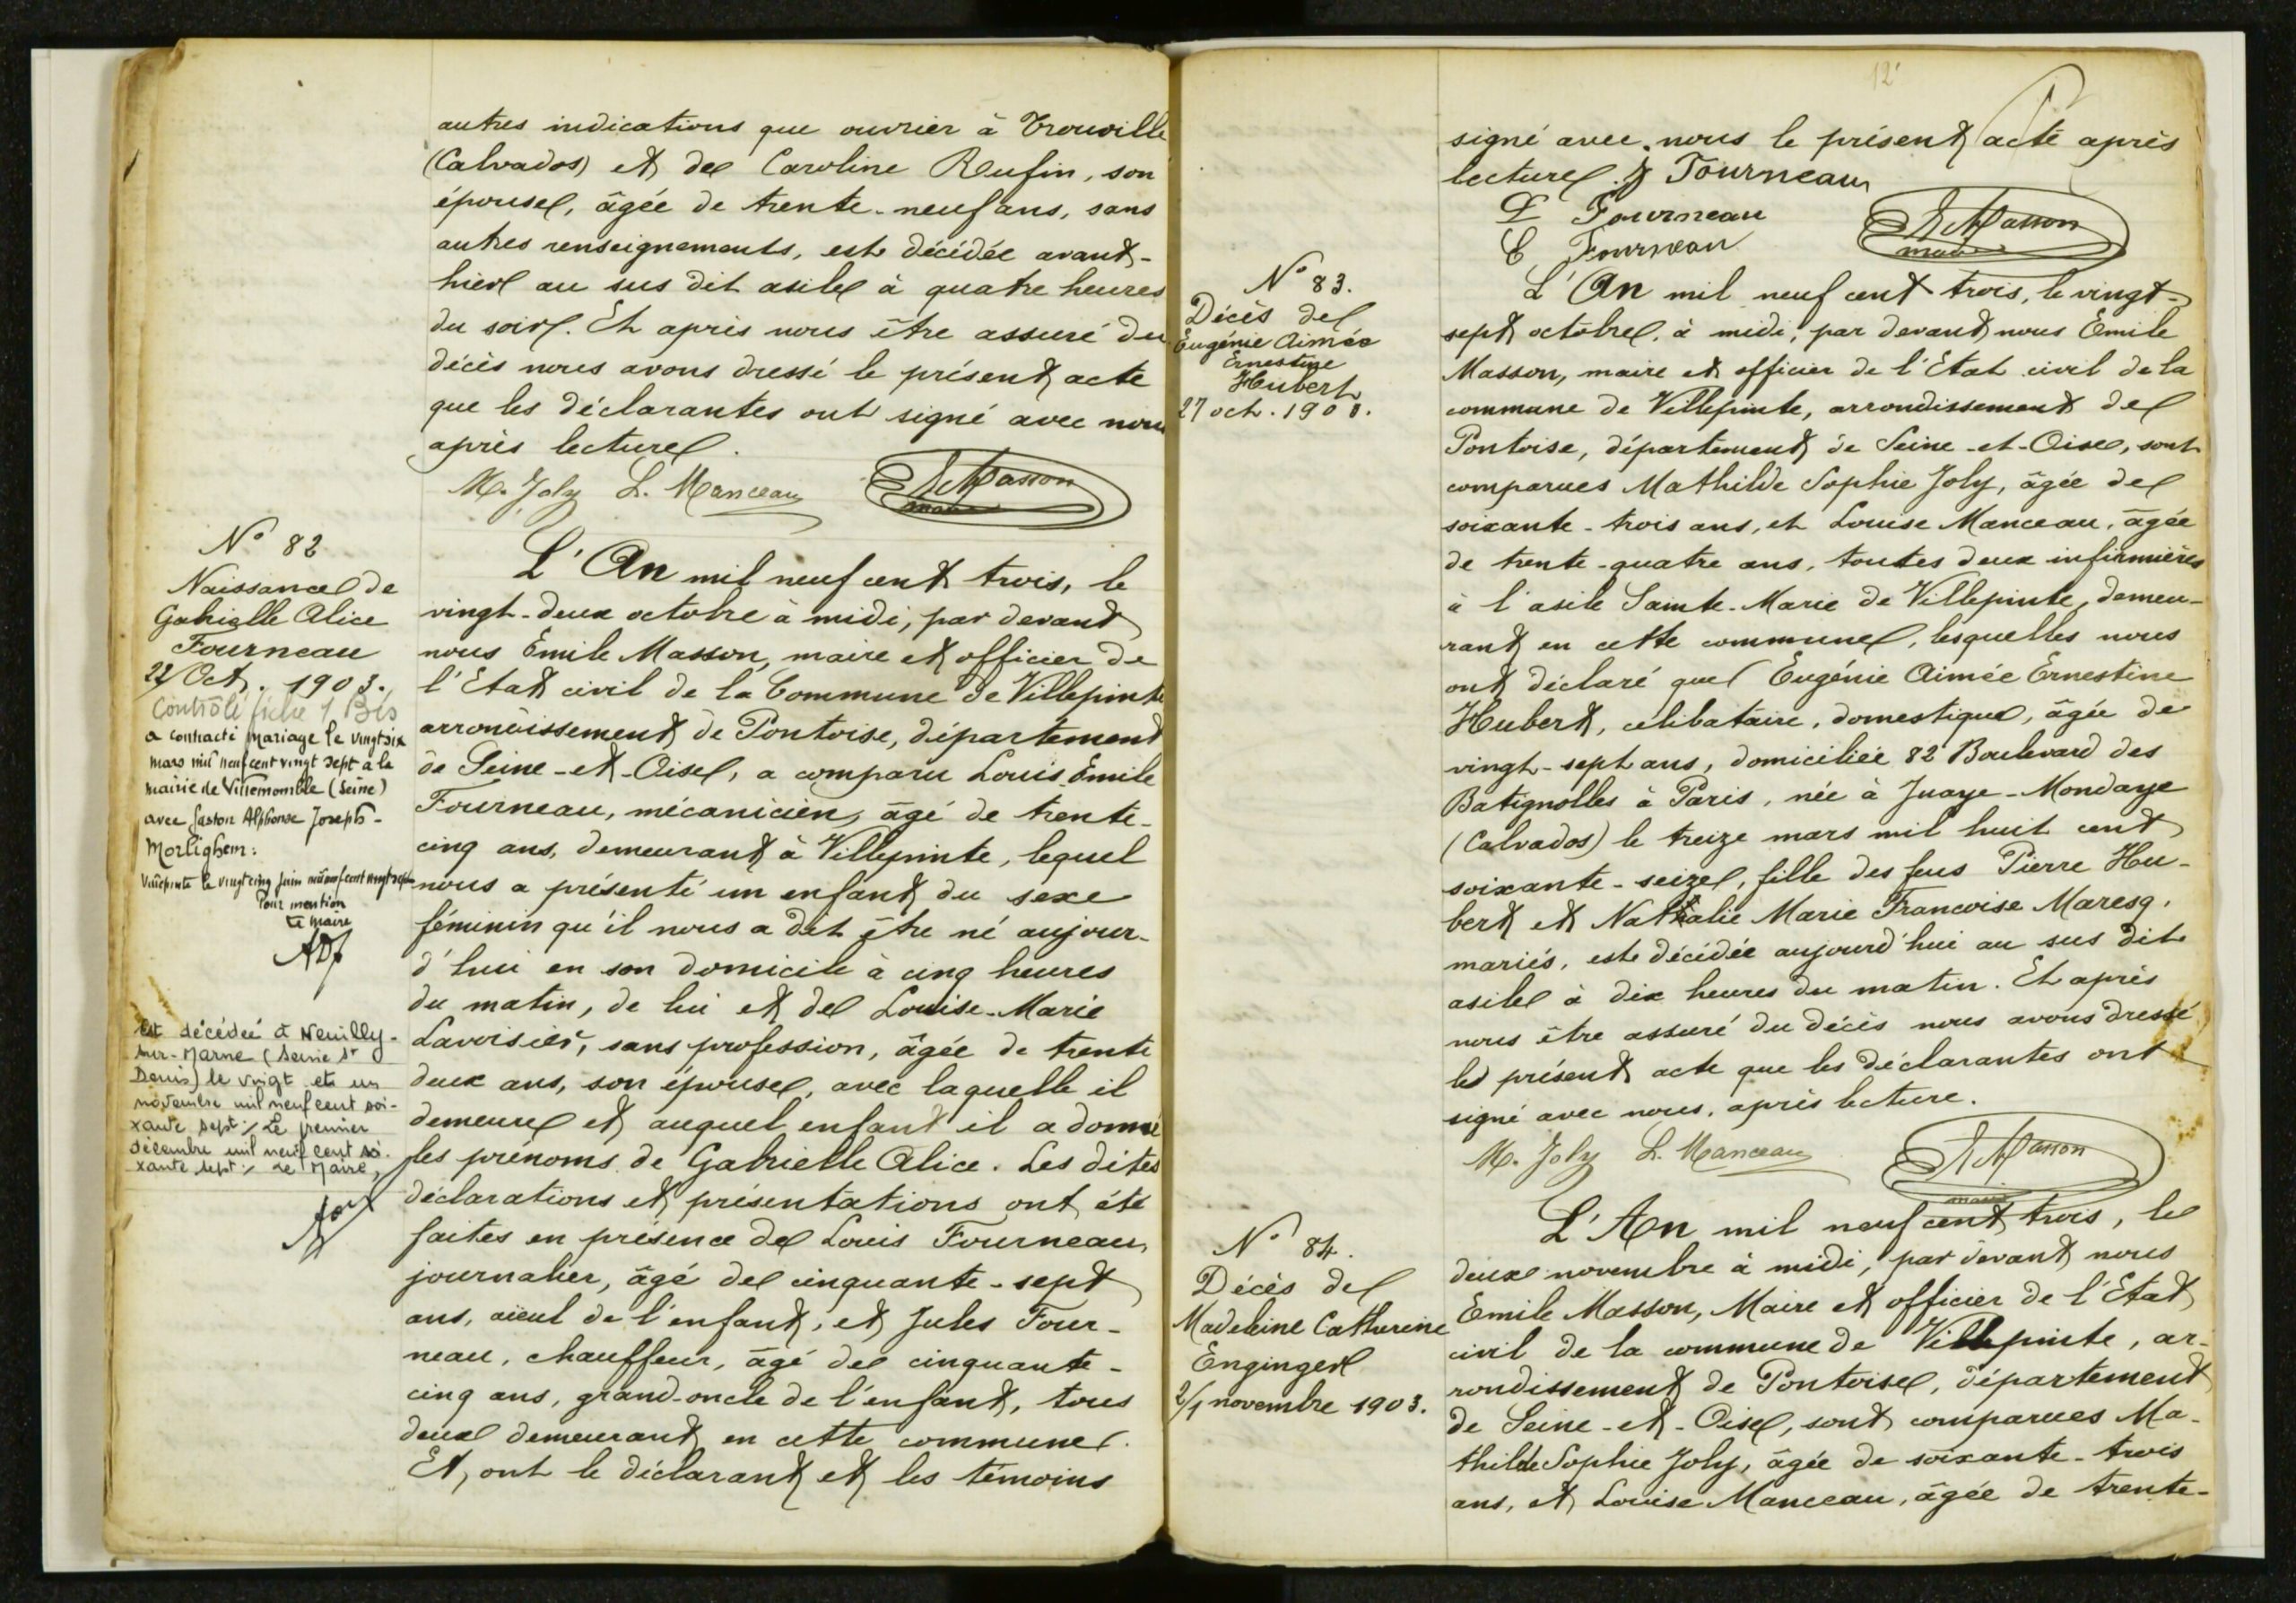 autres indications que ouvrier à Trouville
(Calvados) et de Caroline Rufin, son
épouse, âgée de trente-neuf ans, sans
autres renseignements, est décédée avant-
hier au sus dit asile à quatre heures
du soir. Et après nous être assuré du
décès nous avons dressé le présent acte
que les déclarantes ont signé avec nous
après lecture.
M. Joly L. Manceau E Masson
maire
N° 82
Naissance de
Gabrielle Alice
Fourneau
22 Oct. 1903.
Contrôlé fiche 1 Bis
a contracté mariage le vingt six
mars mil neuf cent vingt sept à la
mairie de Villemomble (Seine)
avec Gaston Alphonse Joseph-
Morlighem:
Villepinte le vingt cinq juin mil neuf cent vingt sept
Pour mention
Le maire
Est décédée à Neuilly-
sur-Marne (Seine St
Denis) le vingt et un
novembre mil neuf cent soi-
xante sept ; Le premier
décembre mil neuf cent soi-
xante sept ; Le Maire,
L'An mil neuf cent trois, le
vingt-deux octobre à midi, par devant
nous Emile Masson, maire et officier de
l'Etat civil de la Commune de Villepinte
arrondissement de Pontoise, département
de Seine-et-Oise, a comparu Louis Emile
Fourneau, mécanicien, âgé de trente-
cinq ans, demeurant à Villepinte, lequel
nous a présenté un enfant du sexe
féminin qu'il nous a dit être né aujour-
d'hui en son domicile à cinq heures
du matin, de lui et de Louise-Marie
Lavoisier, sans profession, âgée de trente
deux ans, son épouse, avec laquelle il
demeure et auquel enfant il a donné
les prénoms de Gabrielle Alice. Les dites
déclarations et présentations ont été
faites en présence de Louis Fourneau,
journalier, âgé de cinquante-sept
ans, aïeul de l'enfant, et Jules Four-
neau, chauffeur, âgé de cinquante-
cinq ans, grand-oncle de l'enfant, tous
deux demeurant en cette commune.
Et, ont le déclarant et les témoins
12
signé avec nous le présent acte après
lecture. J Fourneau
L Fourneau
E Fourneau
E Masson
maire
N° 83.
Décès de
Eugénie Aimée
Ernestine
Hubert
27 oct. 1903.
L'An mil neuf cent trois, le vingt-
sept octobre, à midi, par devant nous Emile
Masson, maire et officier de l'Etat civil de la
commune de Villepinte, arrondissement de
Pontoise, département de Seine-et-Oise, sont
comparues Mathilde Sophie Joly, âgée de
soixante-trois ans, et Louise Manceau, âgée
de trente-quatre ans, toutes deux infirmières
à l'asile Sainte-Marie de Villepinte, demeu-
rant en cette commune, lesquelles nous
ont déclaré que Eugénie Aimée Ernestine
Hubert, célibataire, domestique, âgée de
vingt-sept ans, domiciliée 82 Boulevard des
Batignolles à Paris, née à Juaye-Mondaye
(Calvados) le treize mars mil huit cent
soixante-seize, fille des feus Pierre Hu-
bert et Nathalie Marie Françoise Maresq,
mariés, est décédée aujourd'hui au sus dit
asile à dix heures du matin. Et après
nous être assuré du décès nous avons dressé
le présent acte que les déclarantes ont
signé avec nous, après lecture.
M. Joly L. Manceau E Masson
maire
N° 84.
Décès de
Madeleine Catherine
Enginger
2/1 novembre 1903.
L'An mil neuf cent trois, le
deux novembre à midi, par devant nous
Emile Masson, Maire et officier de l'Etat
civil de la commune de Villepinte, ar-
rondissement de Pontoise, département
de Seine-et-Oise, sont comparues Ma-
thilde Sophie Joly, âgée de soixante-trois
ans, et Louise Manceau, âgée de trente-